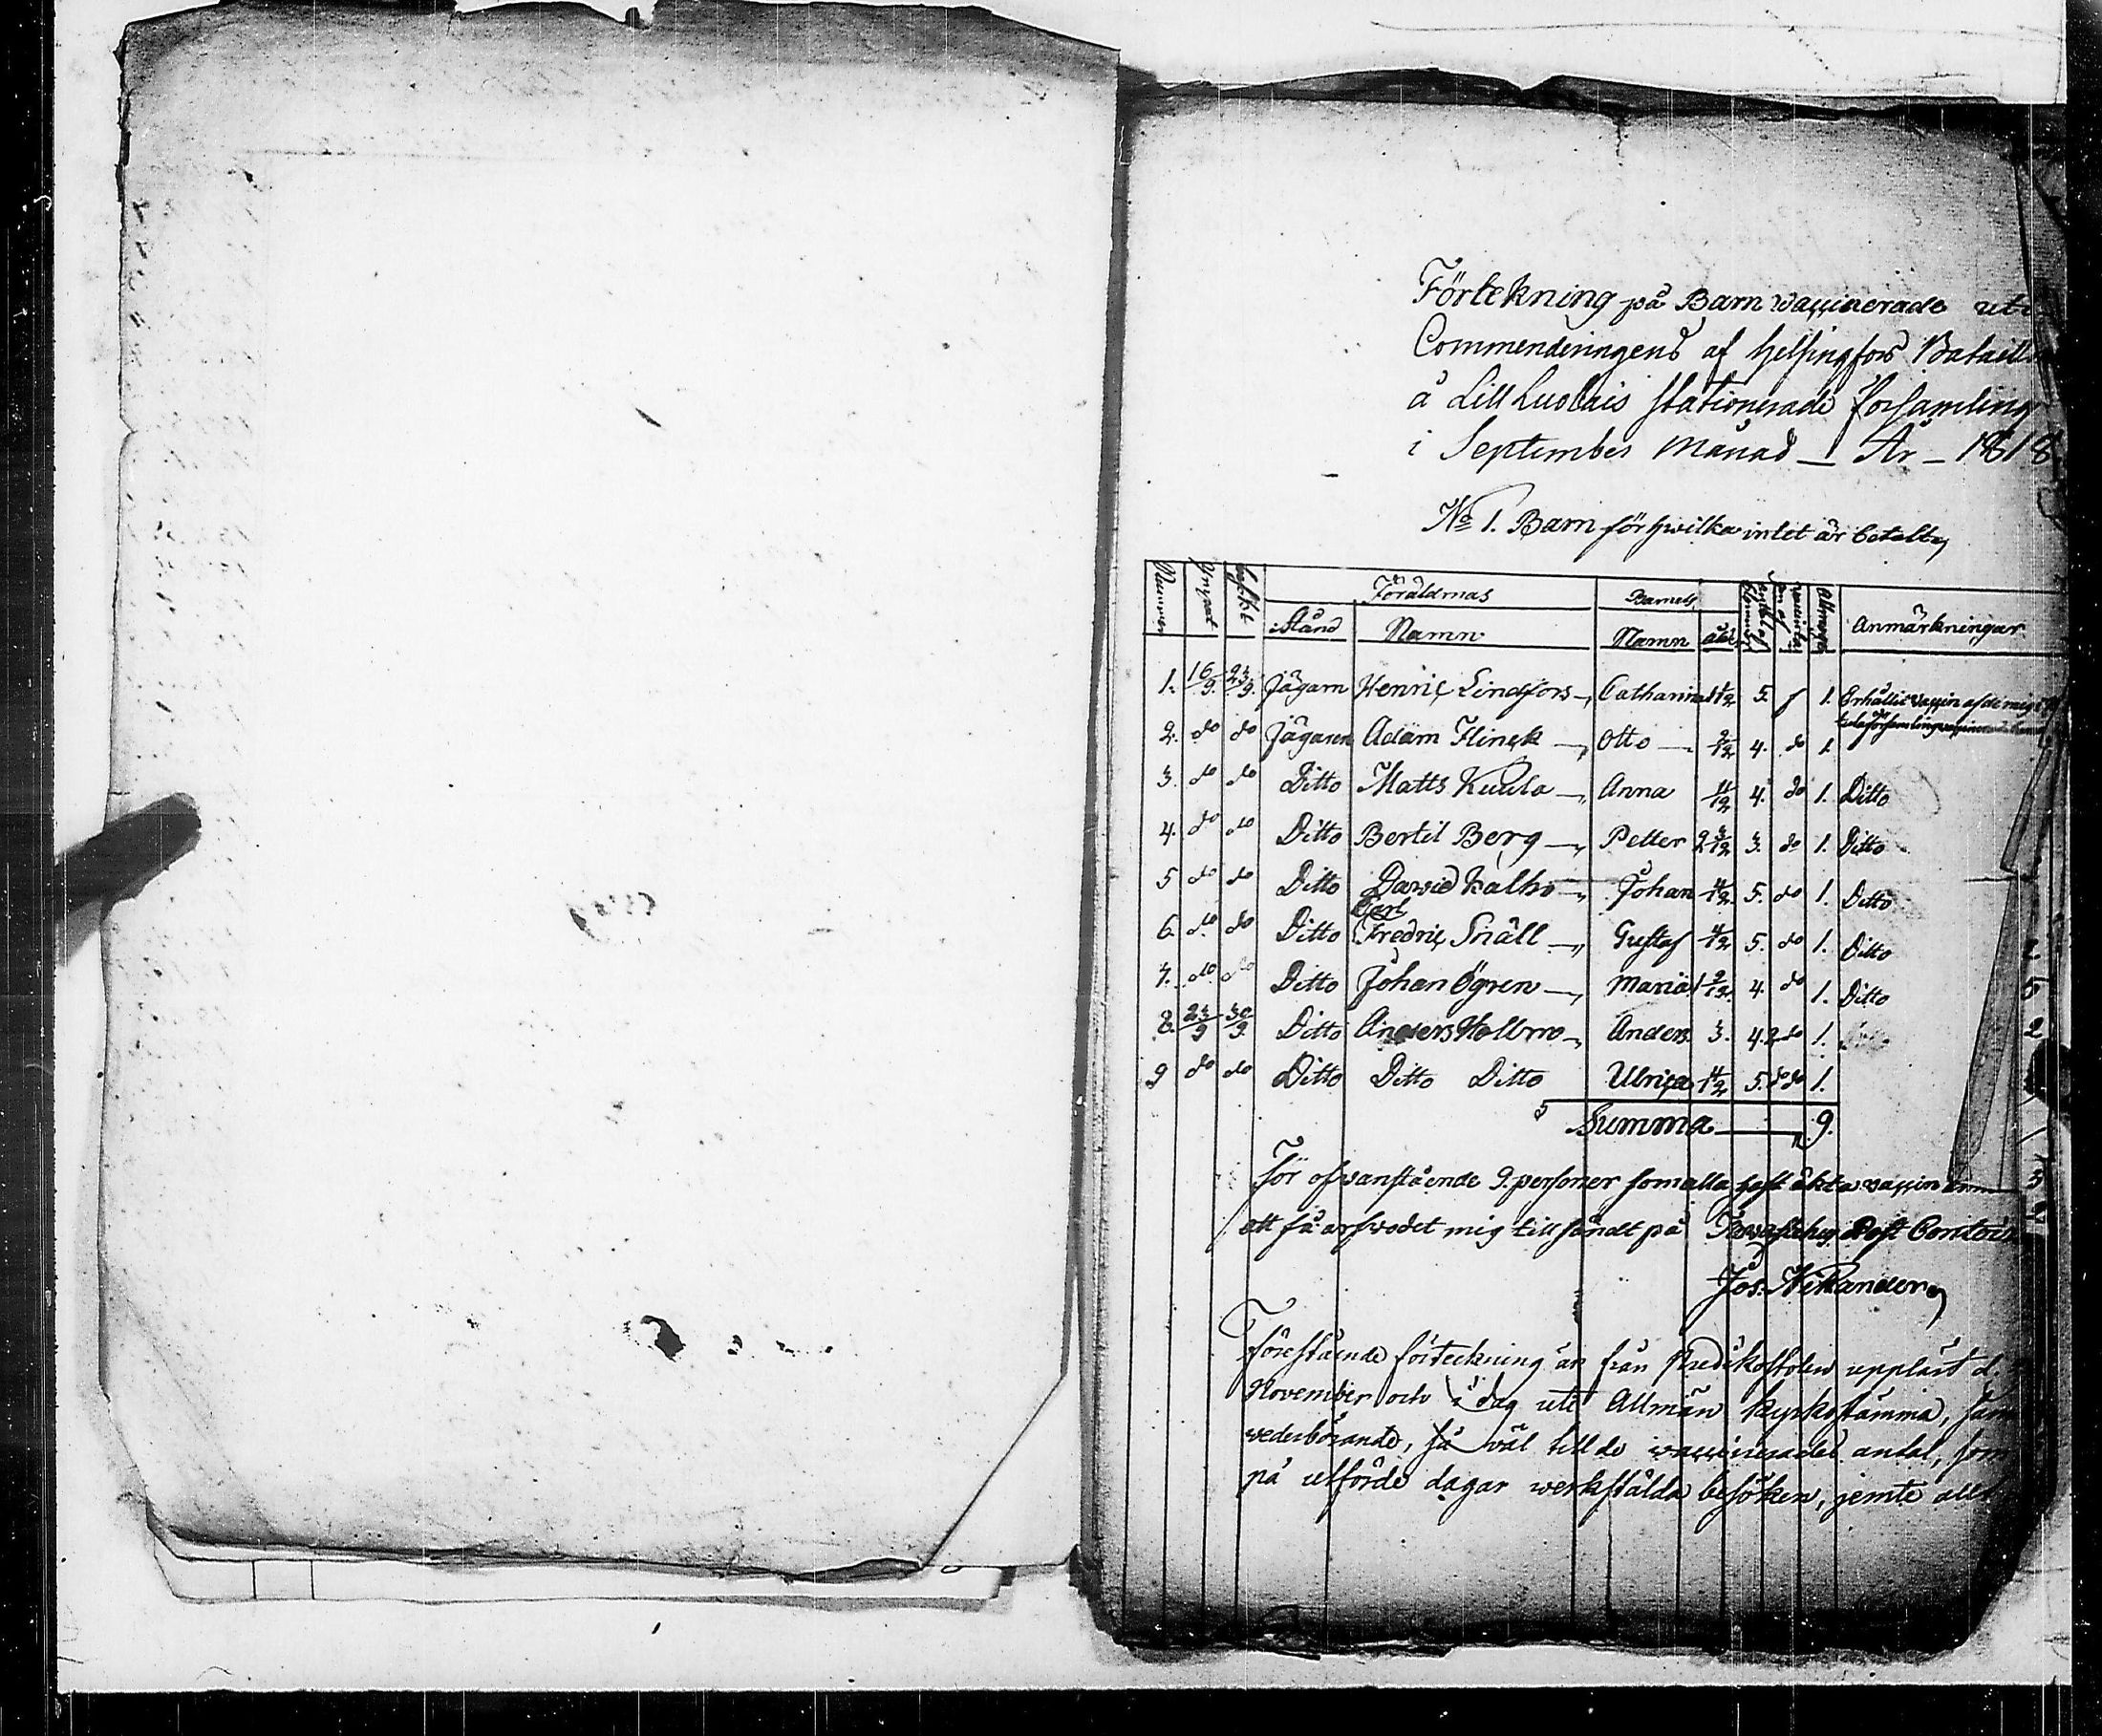 Förtekning på Barn vaccinerade uti
Commenderingens af Helsingfors Bataill
å Lill Luolais stationerade Församling
i September Månad — År – 1818
No 1. Barn för hwilka intet är betalt
Nummer Ympat besökt Föräldrnas Barnets Anmärkningar
Stånd Namn Namn ålder
1. 16/9. 23/9. Jägarn Henric Lindfors Catharina 5. 1. Erhållit vaccin af de
2. do do Jägaren Adam Flinck Otto 2/12 4. do 1.
3. do do Ditto Matts Kuula Anna 11/12 4. do 1. Ditto
4. do do Ditto Bertil Berg Petter 2 3/12 3. do 1. Ditto
5 do do Ditto David Kalho Johan 5. do 1. Ditto
6. do do Ditto Carl Fredric Snäll Gustaf 4/12 5. do 1. Ditto
7. do do Ditto Johan Ögren Maria 1 2/12. 4. do 1. Ditto
8. 23/9 30/9. Ditto Anders Holbmo Anders 3. 4. do 1.
9 do do Ditto Ditto Ditto Ulrica 5. do 1.
Summa 9.
För ofvanstående 9. personer som alla haft äkta vaccin
att få arfvodet mig tillsändt på Tavastehus Post Contoir
Jos. Nikander
Förestående förteckning är från Predikostolen uppläst d.
November och i dag uti Allmän kyrkostämma,
vederbörande, så väl till de vaccinerades antal, som
på utförde dagar werkstälda besöken, jemte